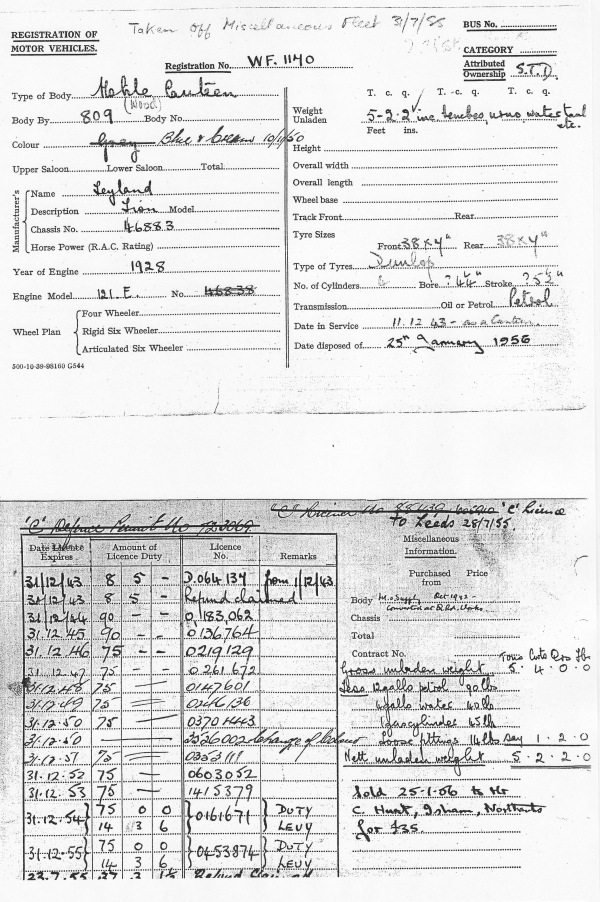 REGISTRATION OF
MOTOR VEHICLES.
Taken off Miscellaneous Fleet 31/7/55
BUS No.
CATEGORY
Registration No. WF. 1140
Attributed
Ownership S.T.D.
Type of Body Mobile Canteen
(Wood)
Body By 809 Body No.
Colour Grey Blue & Cream 10/1/50
Upper Saloon Lower Saloon Total
Manufacturer's
Name Leyland
Description Lion Model
Chassis No. 46883
Horse Power (R.A.C. Rating)
Year of Engine 1928
Engine Model 121. E. No. 46838
Wheel Plan
Four Wheeler
Rigid Six Wheeler
Articulated Six Wheeler
500-10-39-98160 G544
T. c. q. T. c. q. T. c. q.
Weight
Unladen 5-2-2 inc. benches, urns water tank
etc.
Feet ins.
Height
Overall width
Overall length
Wheel base
Track Front Rear
Tyre Sizes
Front 38 x 4" Rear 38 x 4"
Type of Tyres Dunlop
No. of Cylinders Bore ?4¼" Stroke ?5½"
Transmission Oil or Petrol Petrol
Date in Service 11.12.43 - as a Canteen.
Date disposed of 25th January 1956
"C" Defence Permit No 723069
"C" Licence No "C" Licence
to Leeds 28/7/55.
Date Licence
Expires
Amount of
Licence Duty
Licence
No.
Remarks
31/12/43 8 5 - D.064134 from 1/12/43
31/12/43 8 5 - Refund claimed
31/12/44 90 - - 0,183,062
31.12.45 90 - - 0136764
31.12.46 75 - - 0219129
31.12.47 75 - - 0261672
31.12.48 75 0147601
31.12.49 75 0246136
31.12.50 75 0370443
31.12.50 2326002 Change of Colour
31.12.51 75 0353111
31.12.52 75 - 0603052
31.12.53 75 - 1415379
31.12.54 75 0 0 0161671 DUTY
14 3 6 LEVY
31.12.55 75 0 0 0453874 DUTY
14 3 6 LEVY
Miscellaneous
Information.
Purchased
from
Price
Body M. of Supply Oct 1942
Converted at Q. Rd. Works
Chassis
Total
Contract No.
Tons Cwts Qrs lbs
Gross unladen weight 5 . 4 . 0 . 0
Less 12 galls petrol 90 lbs
4 galls water 40 lbs
1 gas cylinder 45 lbs
loose fittings 14 lbs say 1 . 2 . 0
Nett unladen weight 5 . 2 . 2 . 0
Sold 25-1-56 to Mr
C. Hunt, Isham, Northants
for £35.